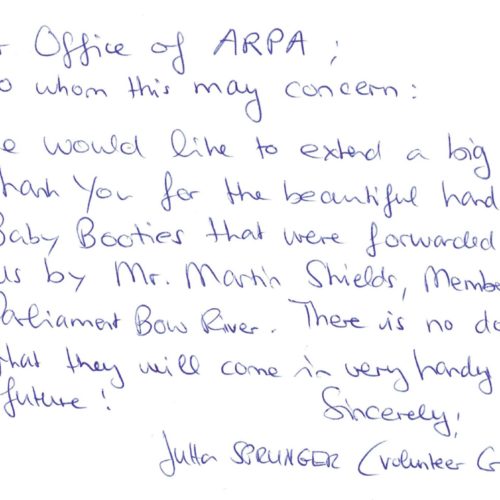 Office of ARPA ;
o whom this may concern :
e would like to extend a big
hank You for the beautiful hand
Baby Booties that were forwarded
us by Mr. Martin Shields, Membe
Parliament Bow River. There is no do
that they will come in very handy
future !
Sincerely,
Jutta SPRUNGER (volunteer Co